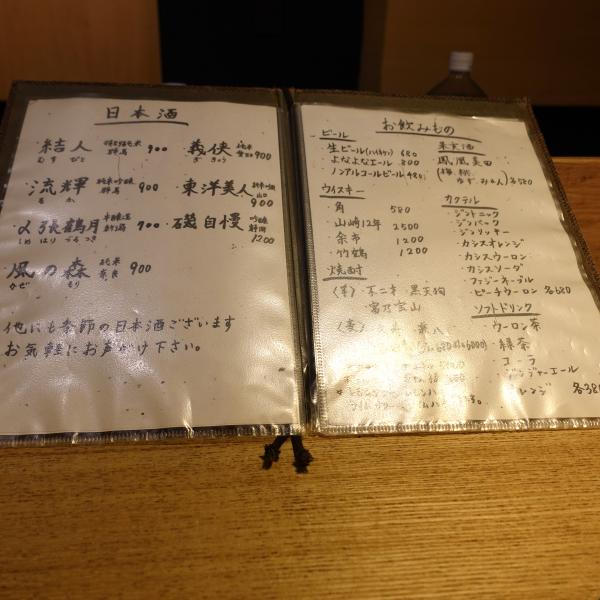 日本酒
結人 群馬 900
むすびと
義侠 純米 900
ぎきょう
流輝 純米吟醸 群馬 900
るか
東洋美人 山口 900
〆張鶴 月 本醸造 新潟 700
しめはりつるつき
磯自慢 吟醸 静岡 1200
風の森 純米 奈良 900
かぜ もり
他にも季節の日本酒ございます
お気軽にお声がけ下さい。
お飲みもの
ビール
・生ビール(ハイネケン) 680
・よなよなエール 800
・ノンアルコールビール 480
ウイスキー
・角 580
・山崎12年 2500
・余市 1200
・竹鶴 1200
焼酎
(芋) 不二才 黒天狗
富乃宝山
(麦) 兼八
果実酒
鳳凰美田
(梅、桃、
ゆず、みかん) 各580
カクテル
・ジントニック
・ジンバック
・ジンリッキー
・カシスオレンジ
・カシスウーロン
・カシスソーダ
・ファジーネーブル
・ピーチウーロン 各680
ソフトドリンク
・ウーロン茶
・緑茶
・コーラ
・ジンジャーエール
レンジ 各380